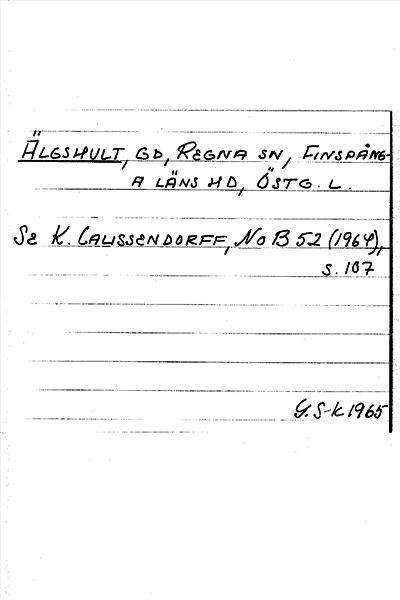 ÄLGSHULT, GD, REGNA SN, FINSPÅNG-
A LÄNS HD, ÖSTG. L.
SE K. CALISSENDORFF, NoB 52 (1964),
S. 107
G. S-k 1965